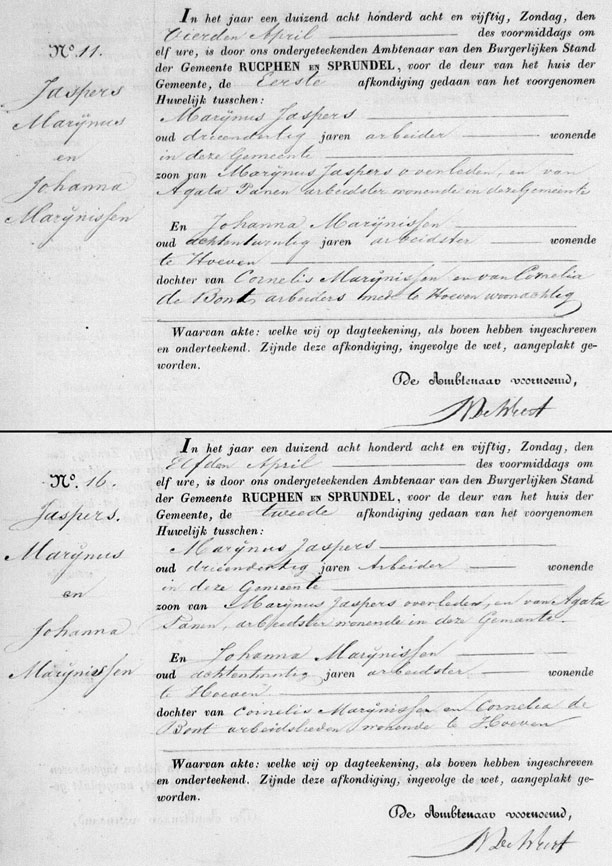 In het jaar een duizend acht honderd acht en vijftig, Zondag, den
Vierden April des voormiddags om
elf ure, is door ons ondergeteekenden Ambtenaar van den Burgerlijken Stand
der Gemeente RUCPHEN EN SPRUNDEL, voor de deur van het huis der
Gemeente, de Eerste afkondiging gedaan van het voorgenomen
Huwelijk tusschen:
No. 11.
Jaspers
Marijnus
en
Johanna
Marijnissen
Marijnus Jaspers
oud drieendertig jaren arbeider wonende
in deze Gemeente
zoon van Marijnus Jaspers overleden, en van
Agata Panen arbeidster wonende in deze Gemeente
En Johanna Marijnissen
oud achtentwintig jaren arbeidster wonende
te Hoeven
dochter van Cornelis Marijnissen en van Cornelia
de Bont arbeiders mede te Hoeven woonachtig
Waarvan akte: welke wij op dagteekening, als boven hebben ingeschreven
en onderteekend. Zijnde deze afkondiging, ingevolge de wet, aangeplakt ge-
worden.
De Ambtenaar voornoemd,
In het jaar een duizend acht honderd acht en vijftig, Zondag, den
Elfden April des voormiddags om
elf ure, is door ons ondergeteekenden Ambtenaar van den Burgerlijken Stand
der Gemeente RUCPHEN EN SPRUNDEL, voor de deur van het huis der
Gemeente, de tweede afkondiging gedaan van het voorgenomen
Huwelijk tusschen:
No. 16.
Jaspers.
Marijnus
en
Johanna
Marijnissen
Marijnus Jaspers
oud drieendertig jaren Arbeider wonende
in deze Gemeente
zoon van Marijnus Jaspers overleden, en van Agata
Panen, arbeidster wonende in deze Gemeente.
En Johanna Marijnissen
oud achtentwintig jaren arbeidster wonende
te Hoeven
dochter van Cornelis Marijnissen en Cornelia de
Bont arbeidslieden wonende te Hoeven
Waarvan akte: welke wij op dagteekening, als boven hebben ingeschreven
en onderteekend. Zijnde deze afkondiging, ingevolge de wet, aangeplakt ge-
worden.
De Ambtenaar voornoemd,